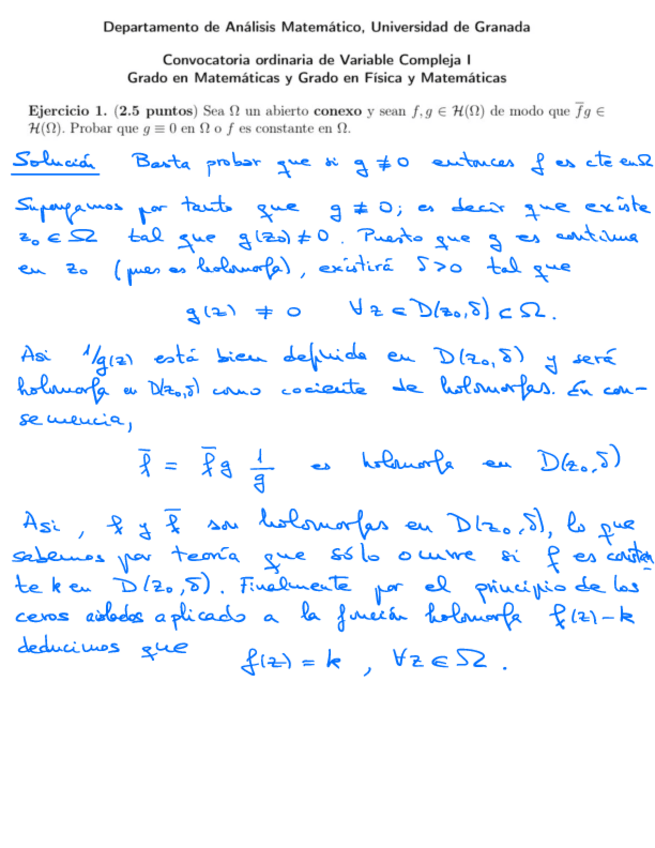 Departamento de Análisis Matemático, Universidad de Granada
Convocatoria ordinaria de Variable Compleja I
Grado en Matemáticas y Grado en Física y Matemáticas
Ejercicio 1. (2.5 puntos) Sea Ω un abierto conexo y sean f, g ∈ H(Ω) de modo que f̅g ∈
H(Ω). Probar que g ≡ 0 en Ω o f es constante en Ω.
Solución Basta probar que si g ≢ 0 entonces f es cte en Ω
Supongamos por tanto que g ≢ 0; es decir que existe
z₀ ∈ Ω tal que g(z₀) ≠ 0. Puesto que g es continua
en z₀ (pues es holomorfa), existirá δ>0 tal que
g(z) ≠ 0 ∀z ∈ D(z₀,δ) ⊂ Ω.
Asi 1/g(z) está bien definida en D(z₀,δ) y será
holomorfa en D(z₀,δ) como cociente de holomorfas. En con-
secuencia,
f̅ = f̅g 1/g es holomorfa en D(z₀,δ)
Asi, f y f̅ son holomorfas en D(z₀,δ), lo que
sabemos por teoría que sólo ocurre si f es constan
te k en D(z₀,δ). Finalmente por el principio de los
ceros aislados aplicado a la función holomorfa f(z)-k
deducimos que f(z) = k, ∀z ∈ Ω.